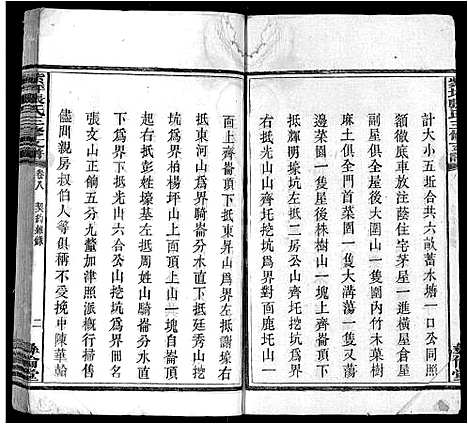 計大小五坵合共六畝蓄水塘一口公同照
分車放灌注蔭住宅茅屋一進橫屋倉屋
副屋俱全屋後大園一隻竹木菓樹
麻土俱全門首菜園一隻又蕩
邊菜園一隻屋後株樹山一塊上齊崙頂下
抵輝明壕左抵二房公山挖坑爲界
右抵光山山齊圫挖坑直抵鹿圫山一
面上齊崙頂下抵東昇山爲界左抵謝壕右
抵東河山爲界騎崙分水直下抵廷秀山挖
坑爲界柏楊坪山上面頂上山一塊自崙頂
下爲界下抵光山六合公山挖坑爲界冊名
起右抵彭姓壕基左抵周姓山騎崙分水直
張文山正餉五分九釐加津照派概行掃售
儘問親房叔伯人等俱稱不受挽中陳華翰
張氏三修支譜
卷八 契約雜錄
二